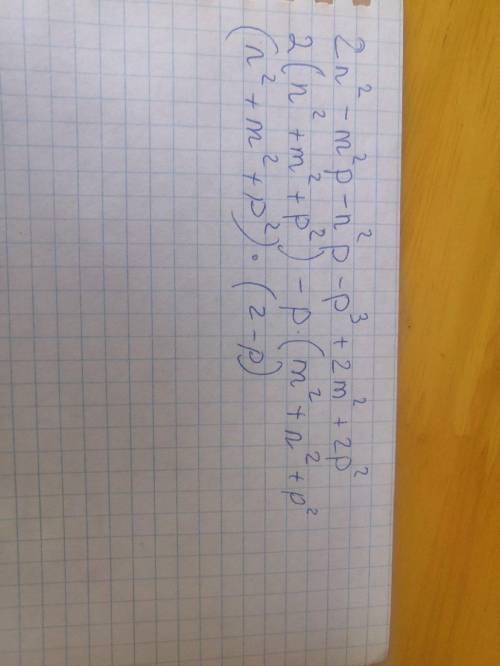 2n² - m²p - n²p - p³ + 2m² + 2p²
2(n² + m² + p²) - p·(m² + n² + p²
(n² + m² + p²)·(2-p)